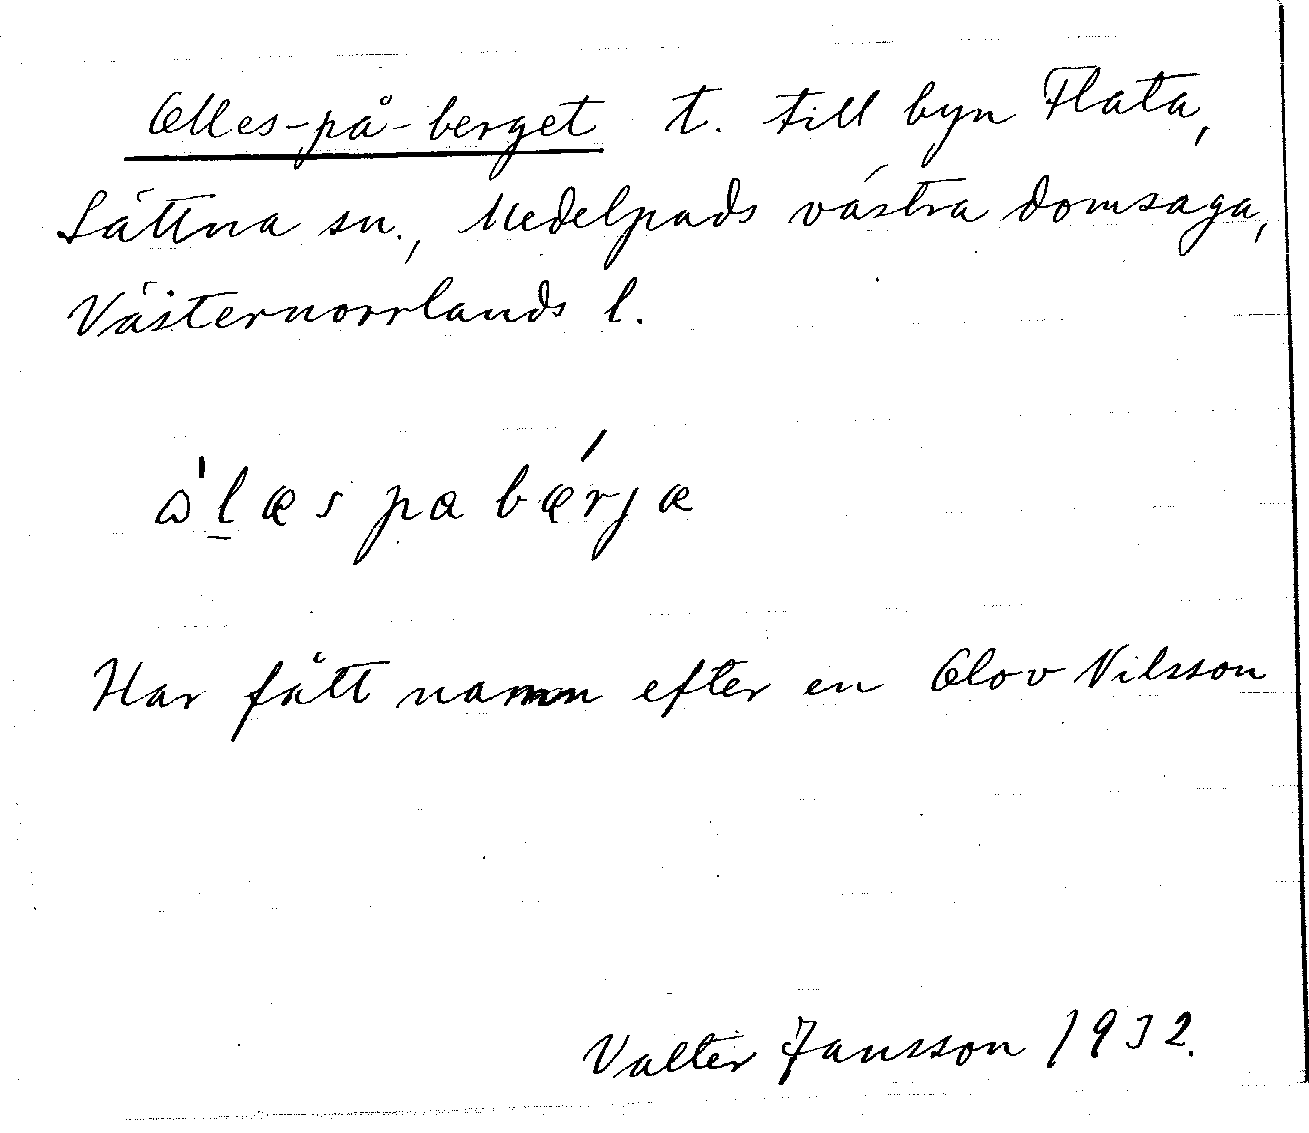 Olles-på-berget t. till byn Flata,
Sättna sn., Medelpads västra domsaga,
Västernorrlands l.
ꞷ̀l̠æs pa bǽrjæ
Har fått namn efter en Olov Nilsson
Valter Jansson 1932.